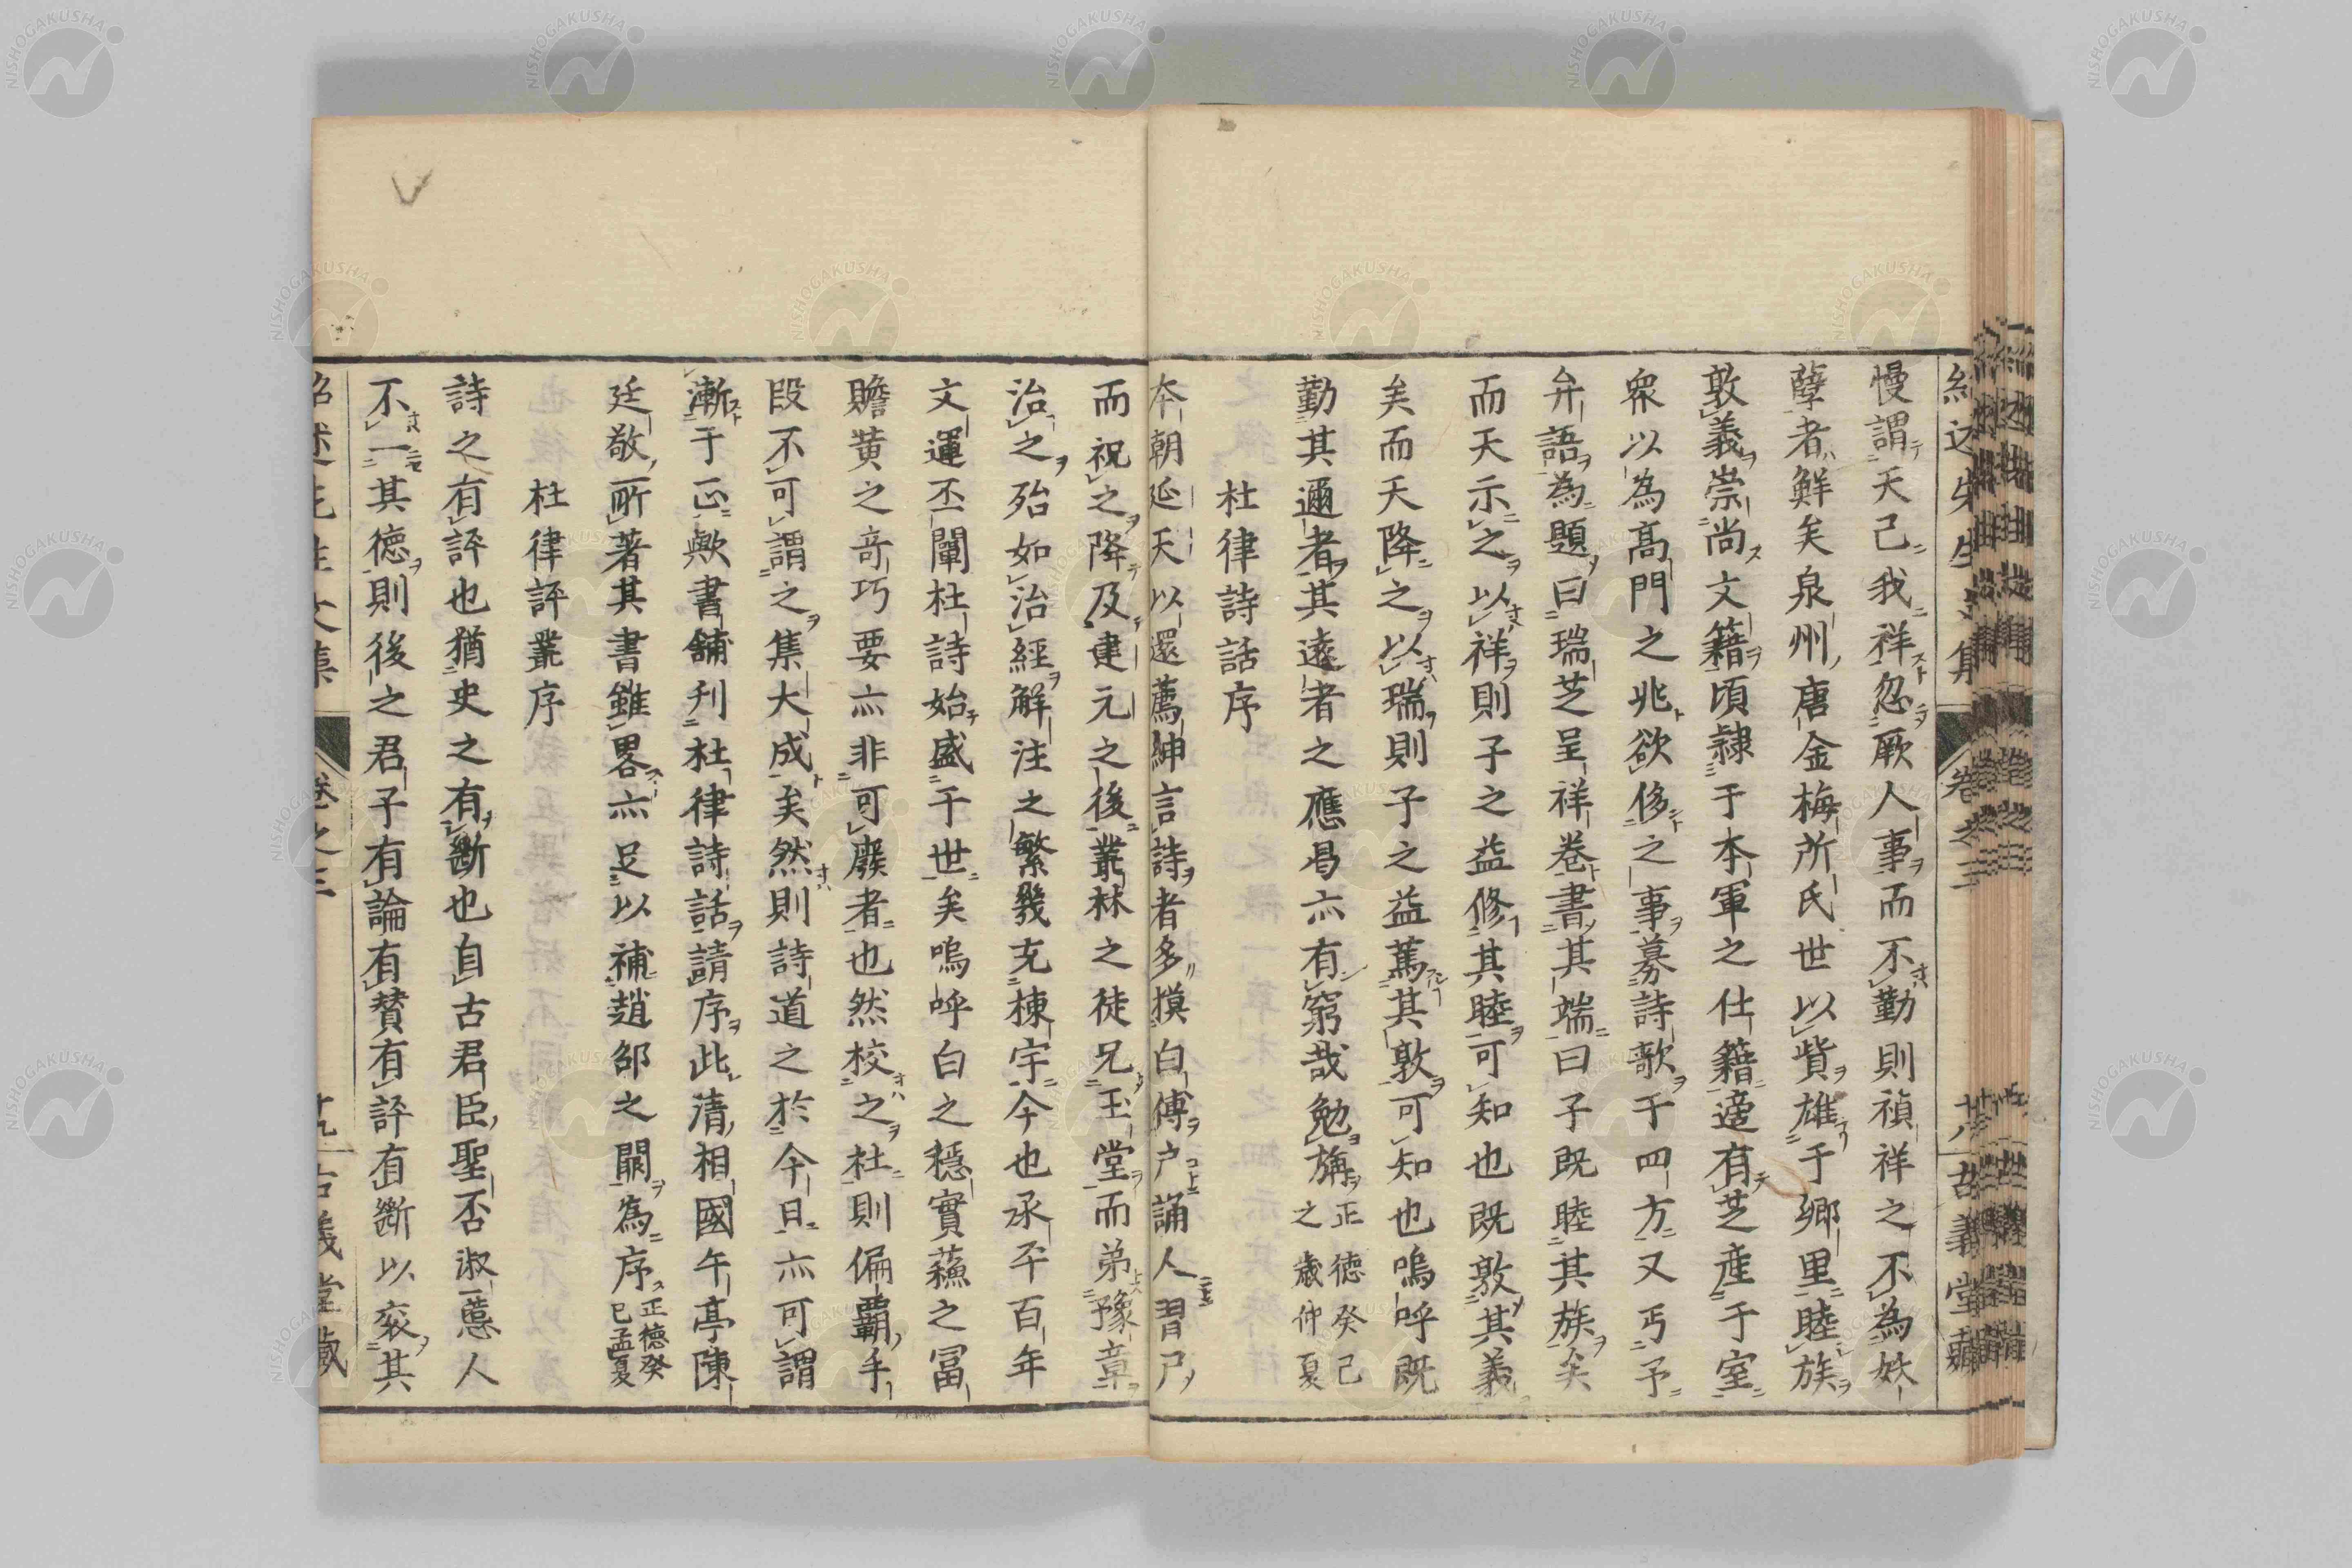 慢謂天己我祥忽厥人事而不勤則禎祥之不為妖
孽者鮮矣泉州唐金梅所氏世以貲雄于鄉里睦族
敦義崇尚文籍頃隷于本軍之仕籍適有芝産于室
衆以為高門之兆欲侈之事募詩歌于四方又丐予
弁語為題曰瑞芝呈祥卷書其端曰子既睦其族矣
而天示之以祥則子之益修其睦可知也既敦其義
矣而天降之以瑞則子之益篤其敦可知也嗚呼既
勤其邇者其遠者之應曷亦有窮哉勉旃正德癸己
之歲仲夏
杜律詩話序
本朝延天以還薦紳言詩者多摸白傅戶誦人習尸
而祝之降及建元之後叢林之徒兄玉堂而弟豫章
治之殆如治經解注之繁幾充棟宇今也承平百年
文運丕闡杜詩始盛于世矣嗚呼白之穩實蘓之冨
贍黄之竒巧要亦非可廢者也然校之杜則偏覇手
段不可謂之集大成矣然則詩道之於今日亦可謂
漸于正歟書舗刋杜律詩話請序此清相國午亭陳
廷敬所著其書雖畧亦足以補趙邵之闕為序正德癸
已孟夏
杜律評叢序
詩之有評也猶史之有斷也自古君臣聖否淑慝人
不一其德則後之君子有論有賛有評有斷以衮其
卷之三
十九
古義堂藏